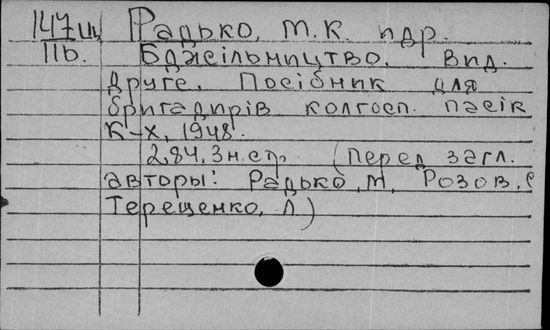 147щ Радько, М.К. и др.
11b. Бджільництво. Вид.
друге. Посібник для
бригадирів колгосп. пасік
К-Х, 1948.
284, 3 н.стр. (перед загл.
авторы: Радько, М. Розов, С
Терещенко, Л.)